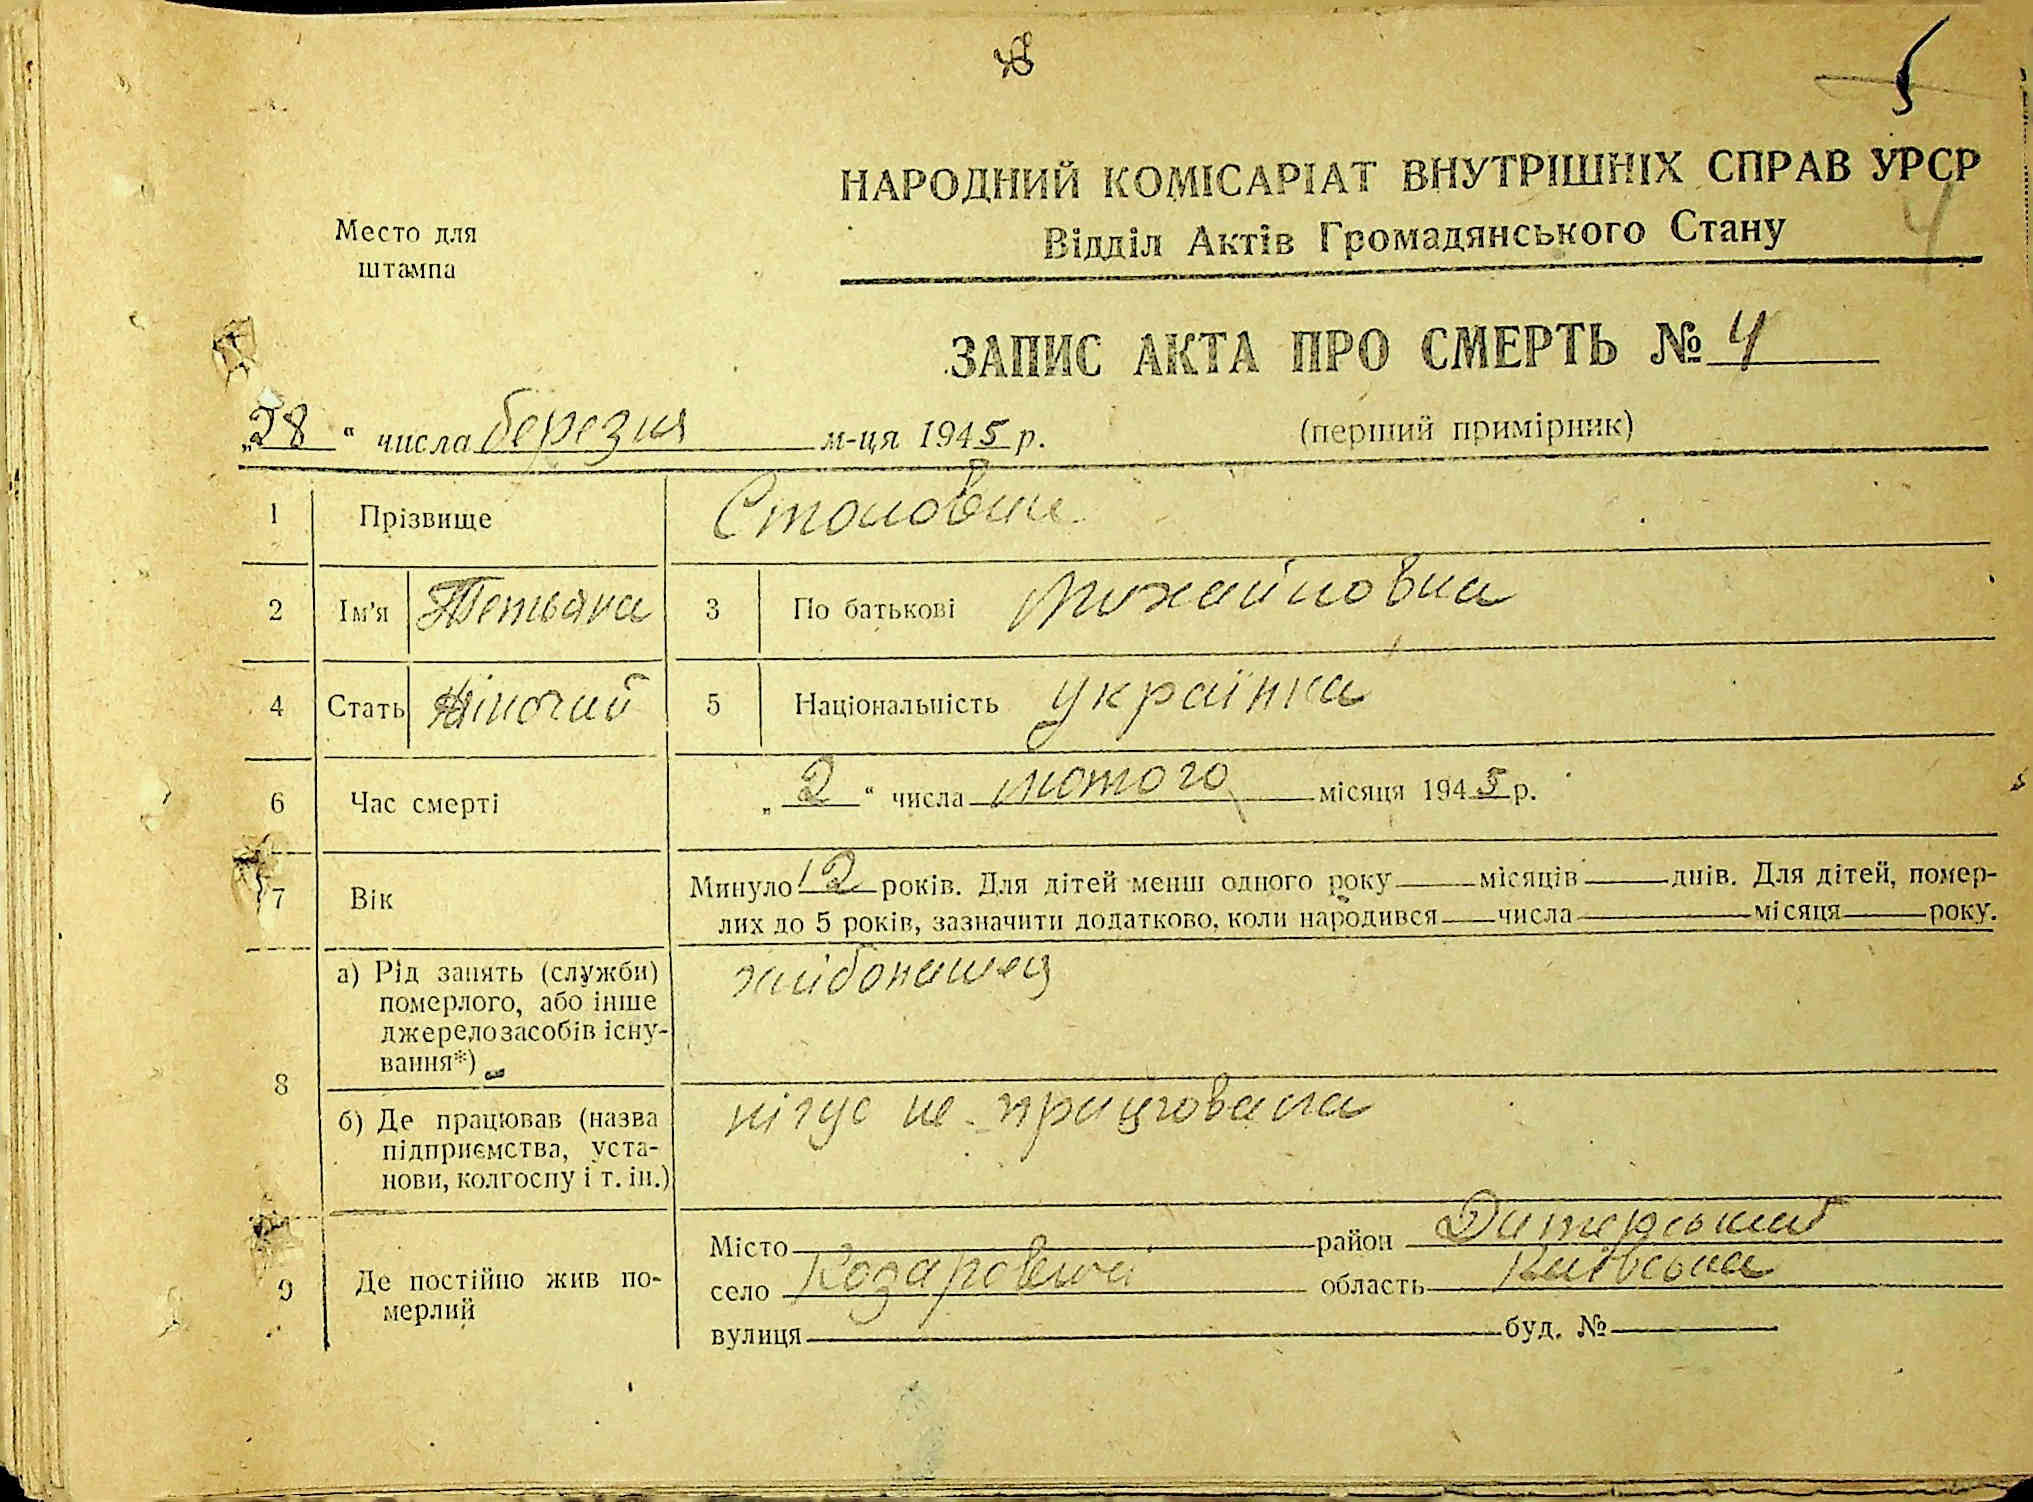 5
НАРОДНИЙ КОМІСАРІАТ ВНУТРІШНІХ СПРАВ УРСР
4
Відділ Актів Громадянського Стану
Место для
штампа
ЗАПИС АКТА ПРО СМЕРТЬ № 4
„28“ числа березня м-ця 1945 р.
(перший примірник)
1 Прізвище
2 Ім'я Тетьяна 3 По батькові Михайловна
4 Стать жіночий 5 Національність українка
6 Час смерті „2“ числа лютого місяця 1945 р.
7 Вік Минуло 12 років. Для дітей менш одного року місяців днів. Для дітей, помер-
лих до 5 років, зазначити додатково, коли народився числа місяця року.
8 а) Рід занять (служби)
померлого, або інше
джерело засобів існу-
вання*)
б) Де працював (назва
підприємства, уста-
нови, колгоспу і т. ін.)
нігде не працювала
9 Де постійно жив по-
мерлий
Місто район Димерський
село Козаровичі область Київська
вулиця буд. №